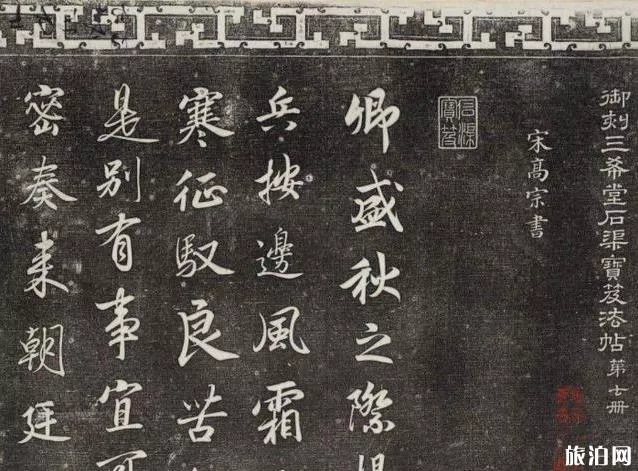 御刻三希堂石渠寶笈法帖 第七册
宋高宗書
石渠寶笈
卿盛秋之際
兵按邊風霜
寒征馭良苦
是別有事宜可
密奏来朝廷
旅泊网